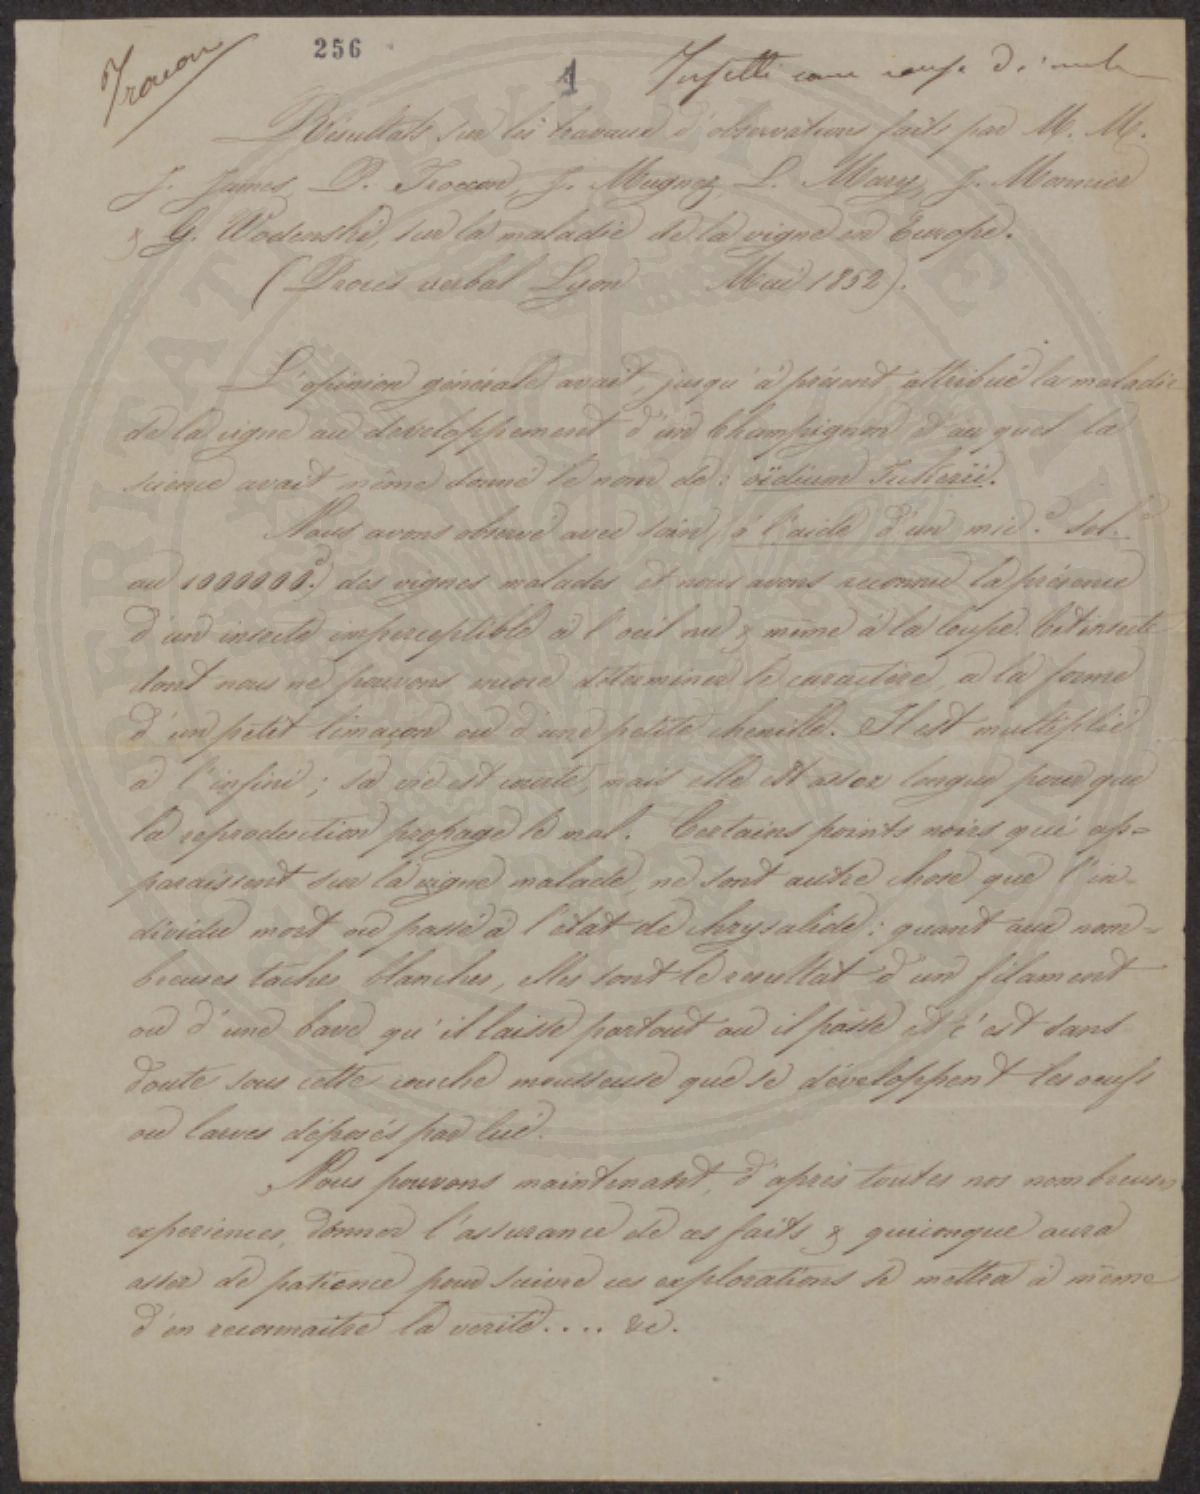 Trocon
256
1
Insectes comme cause de la maladie
Résultats sur les travaux d'observations faits par M. M.
J. James, P. Trocon, J. Mugnoz, L. Mary, J. Monnier
& G. Wodenski, sur la maladie de la vigne en Europe.
(Procès verbal Lyon Mai 1852).
L'opinion générale avait, jusqu'à présent attribué la maladie
de la vigne au developpement d'un Champignon & au quel la
science avait même donné le nom de: oïdium Tukerii.
Nous avons observé avec soin (à l'aide d'un mic.e sol.e
au 1000000e) des vignes malades et nous avons reconnu la présence
d'un insecte imperceptible à l'oeil nu & même à la loupe. Cet insecte
dont nous ne pouvons encore déterminer le caractère, a la forme
d'un petit limaçon ou d'une petite chenille. Il est multiplié
à l'infini; sa vie est courte, mais elle est assez longue pour que
la reproduction propage le mal. Certains points noirs qui ap=
paraissent sur la vigne malade, ne sont autre chose que l'in-
dividu mort ou passé à l'état de chrysalide: quant aux nom=
breuses taches blanches, elles sont le resultat d'un filament
ou d'une bave qu'il laisse partout ou il passe et c'est sans
doute sous cette couche mousseuse que se développent les oeufs
ou larves déposés par lui.
Nous pouvons maintenant, d'après toutes nos nombreuses
experiences, donner l'assurance de ces faits & quiconque aura
assez de patience pour suivre ces explorations se mettra à même
d'en reconnaitre la verité.... &c.